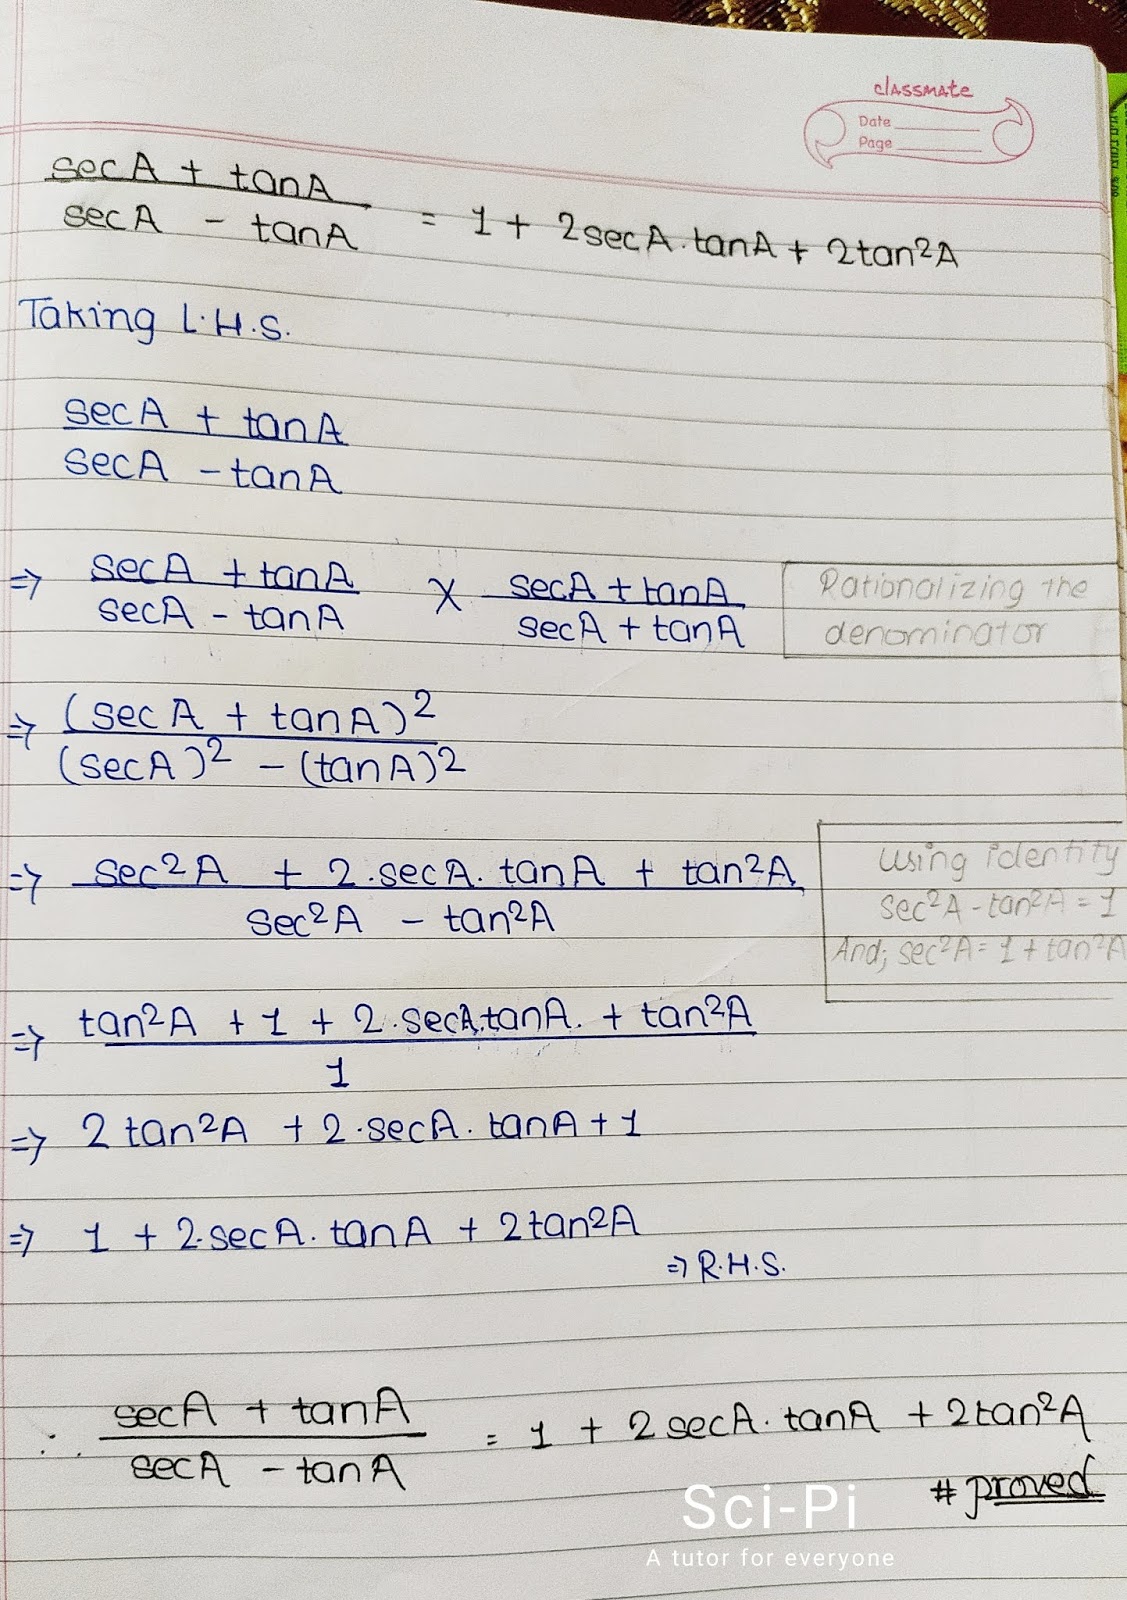 classmate
Date
Page
secA + tanA
secA - tanA = 1 + 2secA.tanA + 2tan²A
Taking L.H.S.
secA + tanA
secA - tanA
=> secA + tanA X secA + tanA
secA - tanA secA + tanA
Rationalizing the
denominator
=> (secA + tanA)²
(secA)² - (tanA)²
=> sec²A + 2.secA. tanA + tan²A
sec²A - tan²A
using identity
sec²A - tan²A = 1
And; sec²A = 1 + tan²A
=> tan²A + 1 + 2.secA.tanA. + tan²A
1
=> 2 tan²A + 2.secA. tanA + 1
=> 1 + 2.secA. tanA + 2tan²A
=> R.H.S.
∴ secA + tanA = 1 + 2 secA. tanA + 2tan²A
secA - tanA
# proved
Sci-Pi
A tutor for everyone